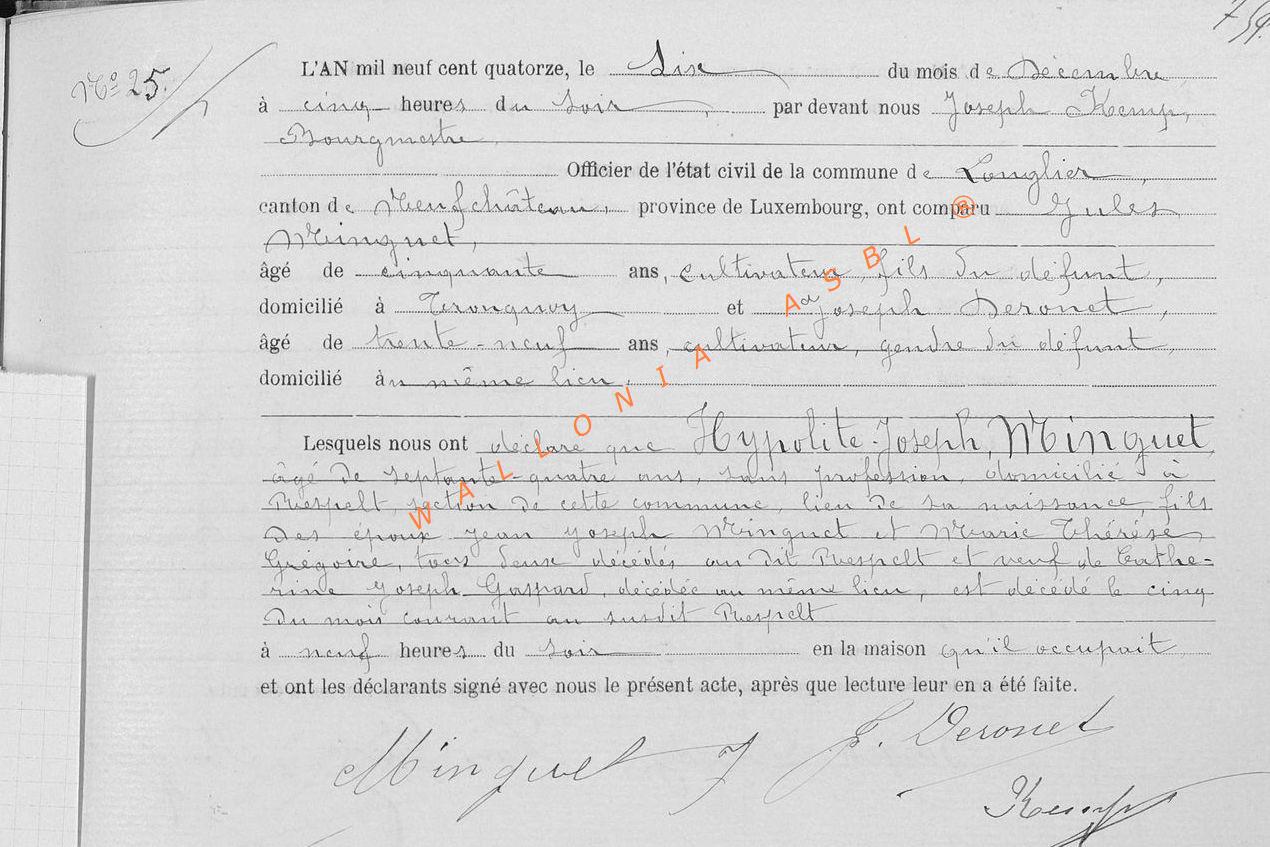 759.
N° 25.
L'AN mil neuf cent quatorze, le Six du mois de Décembre
à cinq heures du soir, par devant nous Joseph Kemp,
Bourgmestre,
Officier de l'état civil de la commune de Longlier,
canton de Neufchâteau, province de Luxembourg, ont comparu Jules
Minguet,
âgé de cinquante ans, cultivateur, fils du défunt,
domicilié à Tronquoy et Joseph Deronet,
âgé de trente-neuf ans, cultivateur, gendre du défunt,
domicilié au même lieu.
Lesquels nous ont déclaré que Hypolite-Joseph, Minguet,
âgé de septante-quatre ans, sans profession, domicilié à
Respelt, section de cette commune, lieu de sa naissance, fils
des époux Jean Joseph Minguet et Marie Thérèse
Grégoire, tous deux décédés au dit Respelt et veuf de Cathe=
rine Joseph Gaspard, décédée au même lieu, est décédé le cinq
du mois courant au susdit Respelt
à neuf heures du soir en la maison qu'il occupait
et ont les déclarants signé avec nous le présent acte, après que lecture leur en a été faite.
Minguet J J. Deronet
Kemp
WALLONIA ASBL ®